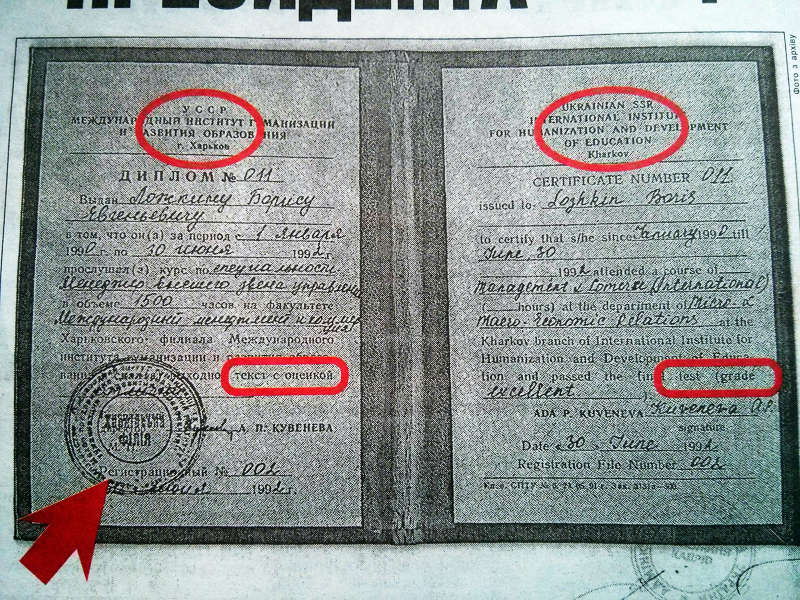 ПРЕЗИДЕНТА
Фото з архіву
УССР
МЕЖДУНАРОДНЫЙ ИНСТИТУТ ГУМАНИЗАЦИИ
И РАЗВИТИЯ ОБРАЗОВАНИЯ
г. Харьков
ДИПЛОМ № 011
Выдан Ложкину Борису
Евгеньевичу
в том, что он(а) за период с 1 января
1990 г. по 30 июня 1992 г.
прослушал(а) курс по специальности
Менеджер высшего звена управления
в объеме 1500 часов на факультете
Международный менеджмент и коммерция
Харьковского филиала Международного
института гуманизации и развития образо-
вания и сдал(а) выходной текст с оценкой
А. П. КУВЕНЕВА
ФІЛІЯ
Регистрационный № 002
1992 г.
UKRAINIAN SSR
INTERNATIONAL INSTITUTE
FOR HUMANIZATION AND DEVELOPMENT
OF EDUCATION
Kharkov
CERTIFICATE NUMBER 011
issued to Lozhkin Boris
to certify that s/he since January 1990 till
June 30
1992 attended a course of
Management & Comerse (International)
( hours) at the department of Micro- &
Macro-Economic Relations at the
Kharkov branch of International Institute for
Humanization and Development of Educa-
tion and passed the final test (grade
excellent )
ADA P. KUVENEVA Kuveneva A.P.
signature
Date 30 June 1992
Registration File Number 002